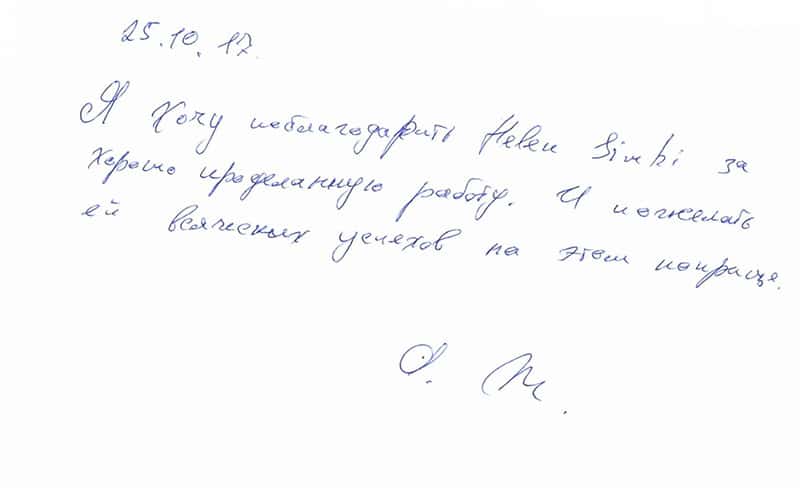 25.10.17.
Я хочу поблагодарить Helen Simki за
хорошо проделанную работу. И пожелать
ей всяческих успехов на этом поприще.
О. М.